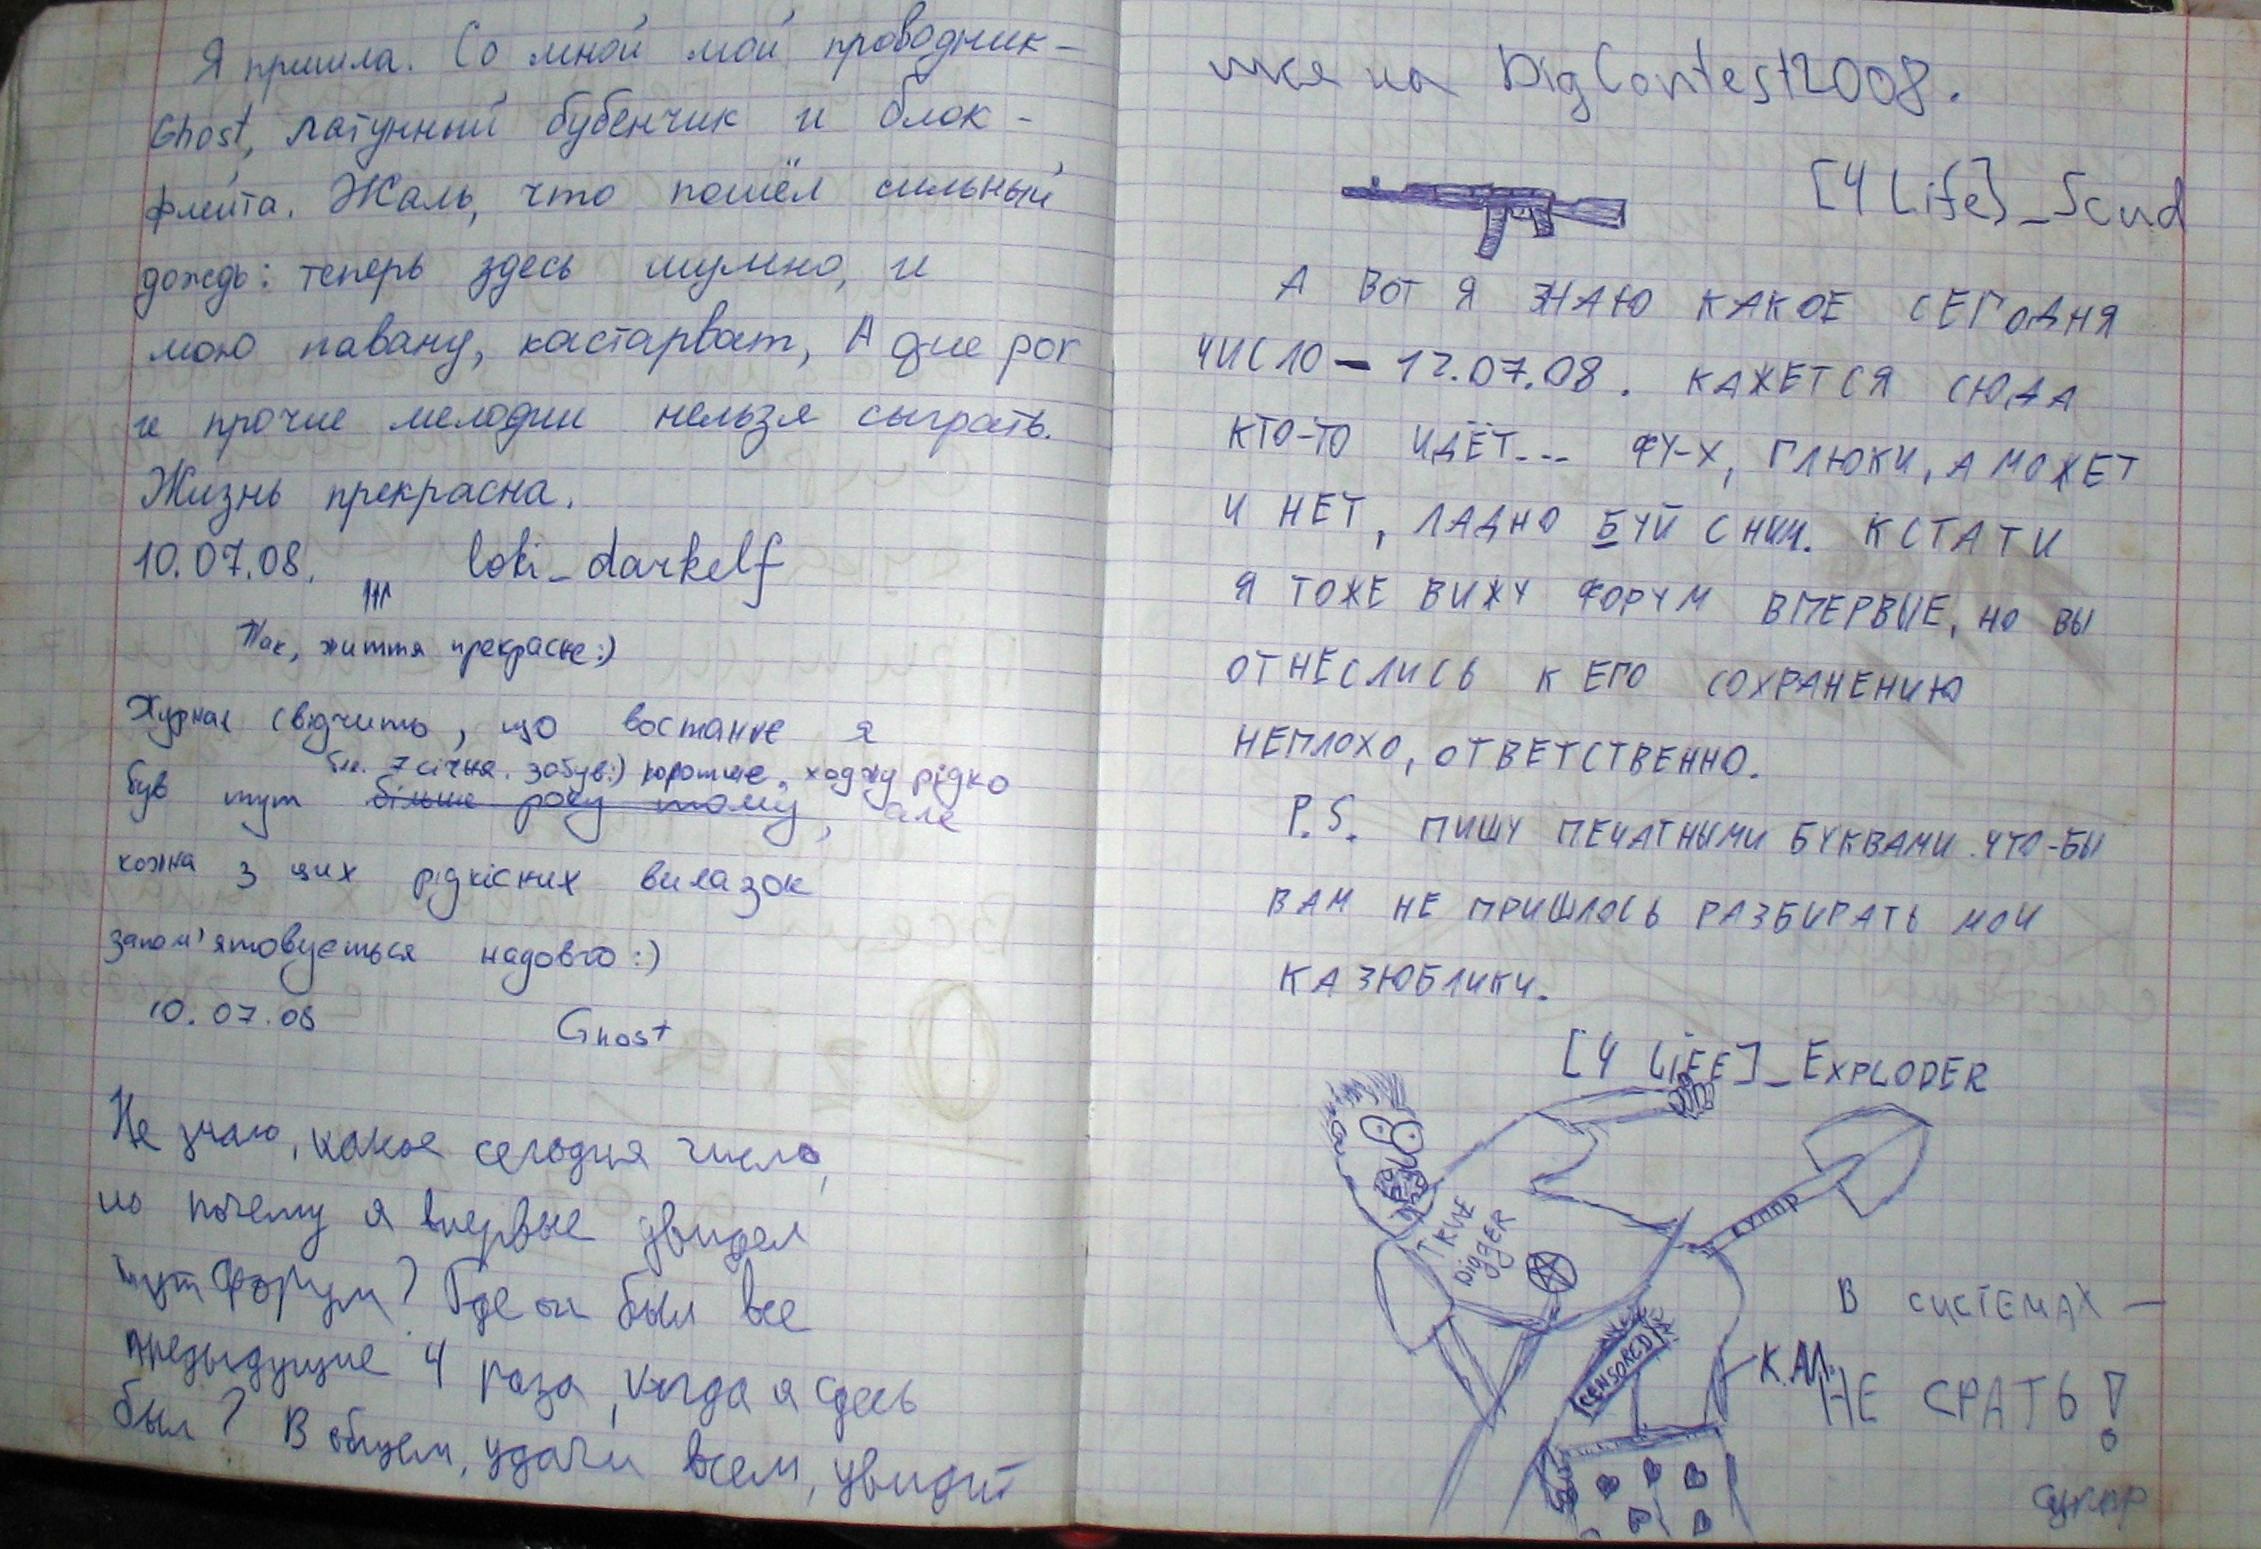 Я пришла. Со мной мой проводник –
Ghost, латунный бубенчик и блок-
флейта. Жаль, что пошёл сильный
дождь: теперь здесь шумно, и
мою павану, кастарват, A que por
и прочие мелодии нельзя сыграть.
Жизнь прекрасна.
10.07.08. loki_darkelf
Так, життя прекрасне:)
Журнал свідчить, що востаннє я
7 січня. забув:) коротше, ходжу рідко
був тут більше року тому, але
кожна з цих рідкісних вилазок
запам'ятовується надовго :)
10.07.08 Ghost
Не знаю, какое сегодня число,
но почему я впервые увидел
тут форум? Где он был все
предыдущие 4 раза, когда я сдесь
был? В общем, удачи всем, увидим
мся на DigContest2008.
[4 Life]_Scud
А ВОТ Я ЗНАЮ КАКОЕ СЕГОДНЯ
ЧИСЛО – 12.07.08. КАЖЕТСЯ СЮДА
КТО-ТО ИДЁТ... ФУ-Х, ГЛЮКИ, А МОЖЕТ
И НЕТ, ЛАДНО БУЙ С НИМ. КСТАТИ
Я ТОЖЕ ВИЖУ ФОРУМ ВПЕРВЫЕ, НО ВЫ
ОТНЕСЛИСЬ К ЕГО СОХРАНЕНИЮ
НЕПЛОХО, ОТВЕТСТВЕННО.
P.S. ПИШУ ПЕЧАТНЫМИ БУКВАМИ ЧТО-БЫ
ВАМ НЕ ПРИШЛОСЬ РАЗБИРАТЬ МОИ
КАЗЮБЛИКИ.
[4 LiFE]_EXPLODER
TRUE
DiggER
CENSORED
К.А.Л.
В СИСТЕМАХ –
НЕ СРАТЬ!